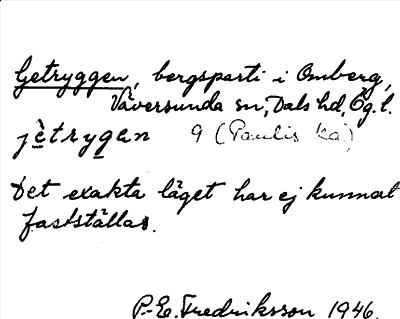 Getryggen, bergsparti i Omberg,
Väversunda sn, Dals hd, Ög.l.
jètrygan 9 (Paulis ka)
Det exakta läget har ej kunnat
fastställas.
P.-E. Fredriksson 1946.